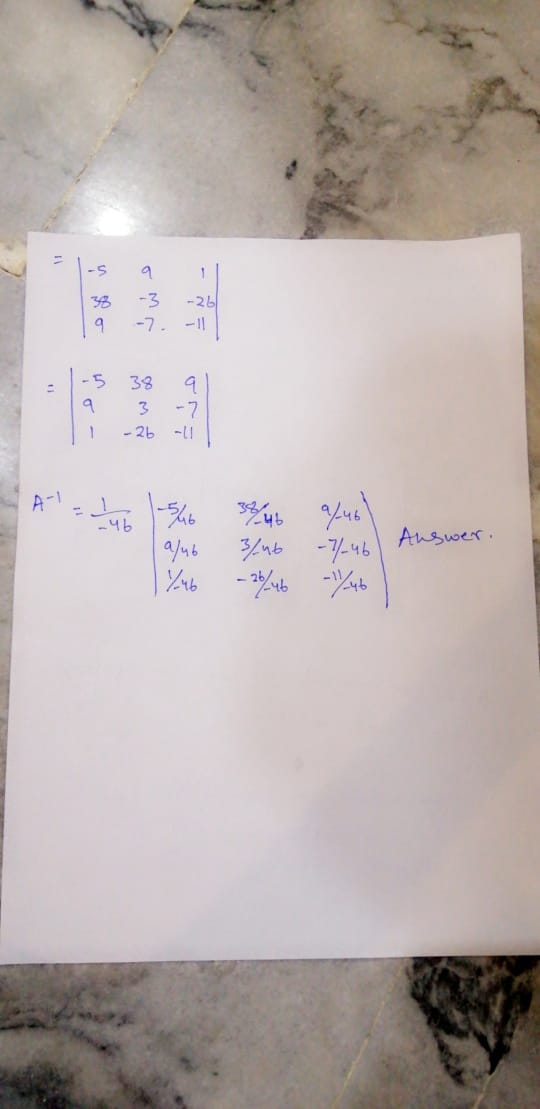 = | -5 9 1 |
| 38 -3 -26 |
| 9 -7. -11 |
= | -5 38 9 |
| 9 3 -7 |
| 1 -26 -11 |
A-1 = 1/-46 | -5/-46 38/-46 9/-46 |
| 9/-46 3/-46 -7/-46 | Answer.
| 1/-46 -26/-46 -11/-46 |